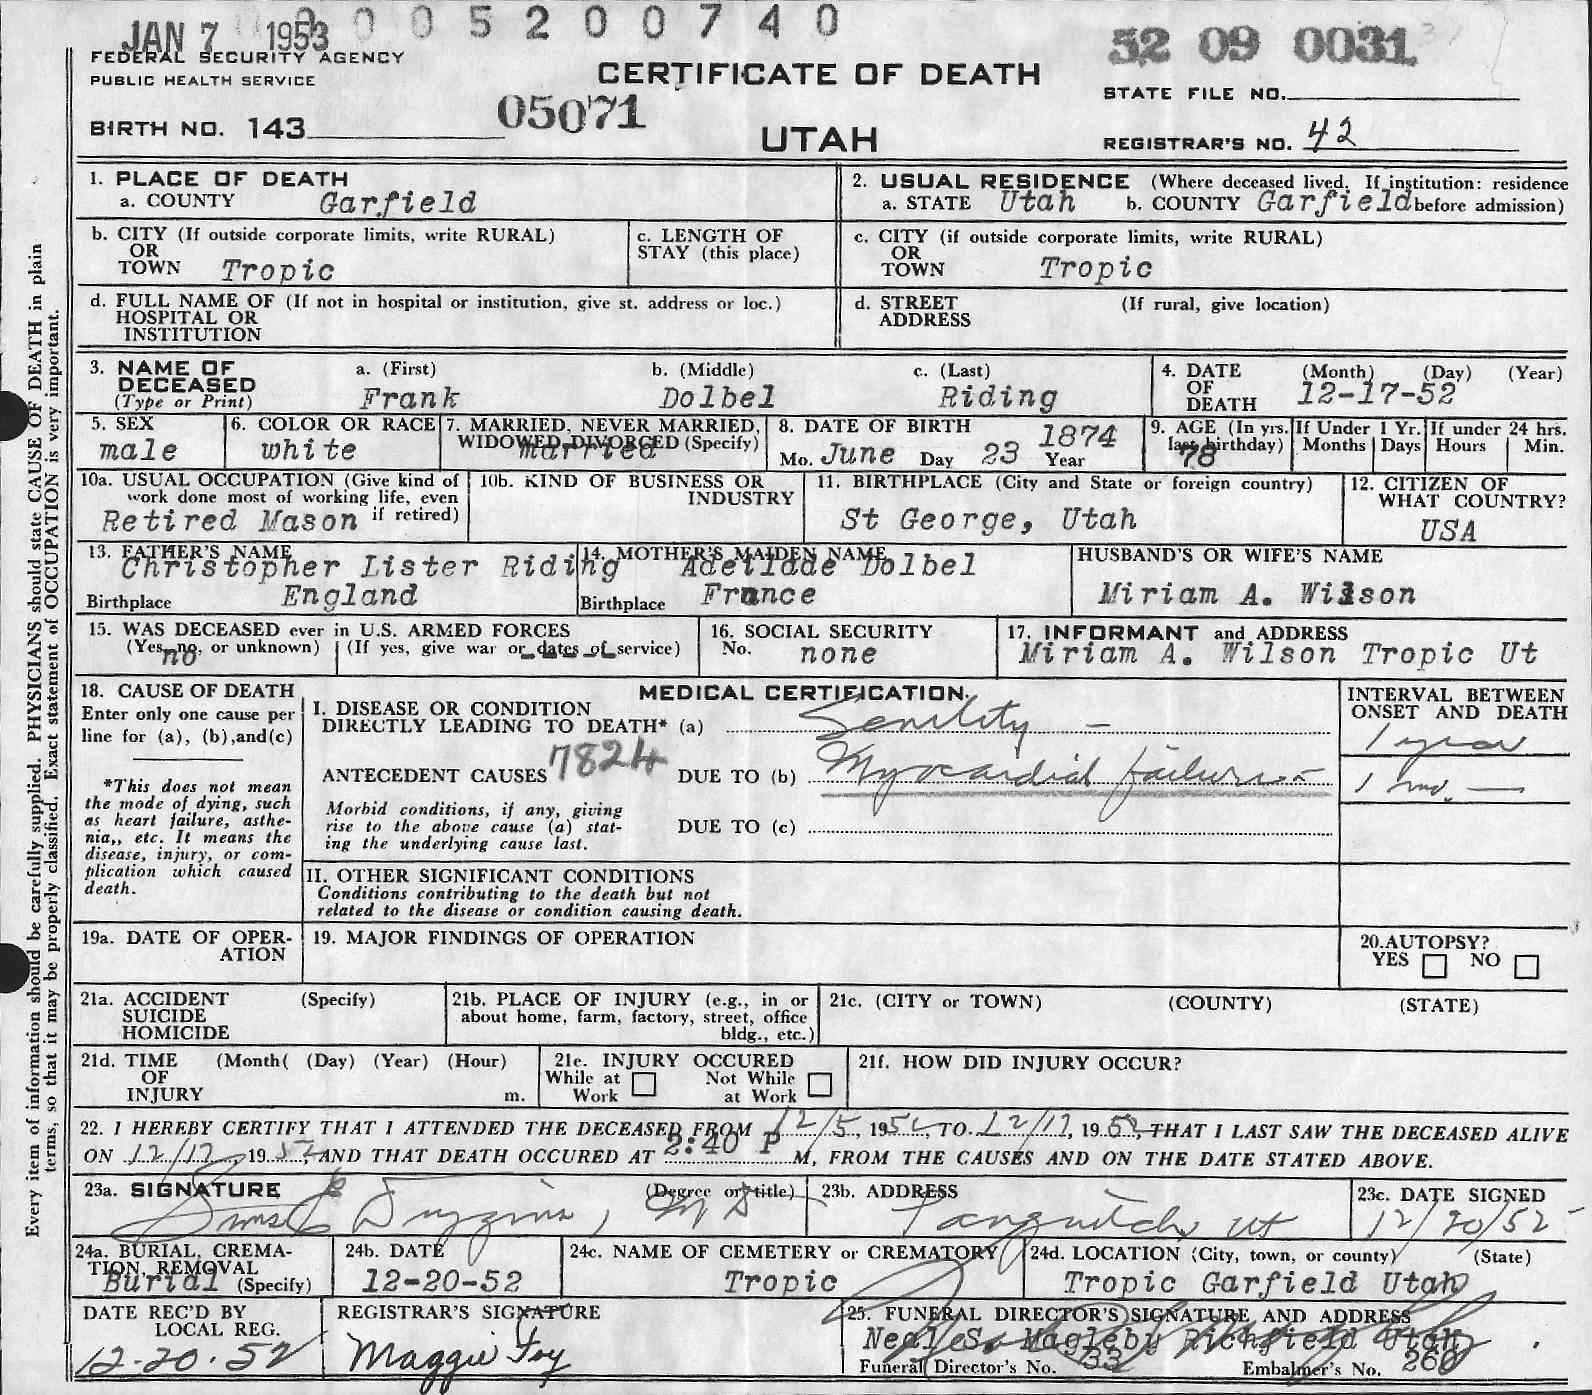 JAN 7 1953 0005200740
52 09 0031
FEDERAL SECURITY AGENCY
PUBLIC HEALTH SERVICE
CERTIFICATE OF DEATH
STATE FILE NO.
BIRTH NO. 143
05071
UTAH
REGISTRAR'S NO. 42
1. PLACE OF DEATH
a. COUNTY Garfield
2. USUAL RESIDENCE (Where deceased lived. If institution: residence
a. STATE Utah b. COUNTY Garfield before admission)
b. CITY (If outside corporate limits, write RURAL)
OR
TOWN Tropic
c. LENGTH OF
STAY (this place)
c. CITY (if outside corporate limits, write RURAL)
OR
TOWN Tropic
d. FULL NAME OF (If not in hospital or institution, give st. address or loc.)
HOSPITAL OR
INSTITUTION
d. STREET (If rural, give location)
ADDRESS
3. NAME OF DECEASED
(Type or Print)
a. (First) b. (Middle) c. (Last)
Frank Dolbel Riding
4. DATE OF DEATH (Month) (Day) (Year)
12-17-52
5. SEX
male
6. COLOR OR RACE
white
7. MARRIED, NEVER MARRIED,
WIDOWED, DIVORCED (Specify)
married
8. DATE OF BIRTH 1874
Mo. June Day 23 Year
9. AGE (In yrs. last birthday)
78
If Under 1 Yr.
Months Days
If under 24 hrs.
Hours Min.
10a. USUAL OCCUPATION (Give kind of
work done most of working life, even
Retired Mason if retired)
10b. KIND OF BUSINESS OR
INDUSTRY
11. BIRTHPLACE (City and State or foreign country)
St George, Utah
12. CITIZEN OF
WHAT COUNTRY?
USA
13. FATHER'S NAME
Christopher Lister Riding
Birthplace England
14. MOTHER'S MAIDEN NAME
Adeliade Dolbel
Birthplace France
HUSBAND'S OR WIFE'S NAME
Miriam A. Wilson
15. WAS DECEASED ever in U.S. ARMED FORCES
(Yes, no, or unknown) (If yes, give war or dates of service)
no
16. SOCIAL SECURITY
No. none
17. INFORMANT and ADDRESS
Miriam A. Wilson Tropic Ut
18. CAUSE OF DEATH
Enter only one cause per
line for (a), (b), and (c)
*This does not mean
the mode of dying, such
as heart failure, asthe-
nia,, etc. It means the
disease, injury, or com-
plication which caused
death.
MEDICAL CERTIFICATION
I. DISEASE OR CONDITION
DIRECTLY LEADING TO DEATH* (a) Senility -
ANTECEDENT CAUSES 7824 DUE TO (b) Myocardial failure -
Morbid conditions, if any, giving
rise to the above cause (a) stat-
ing the underlying cause last.
DUE TO (c)
INTERVAL BETWEEN
ONSET AND DEATH
1 year
1 mo. -
II. OTHER SIGNIFICANT CONDITIONS
Conditions contributing to the death but not
related to the disease or condition causing death.
19a. DATE OF OPER-
ATION
19. MAJOR FINDINGS OF OPERATION
20. AUTOPSY?
YES NO
21a. ACCIDENT (Specify)
SUICIDE
HOMICIDE
21b. PLACE OF INJURY (e.g., in or
about home, farm, factory, street, office
bldg., etc.)
21c. (CITY or TOWN) (COUNTY) (STATE)
21d. TIME (Month( (Day) (Year) (Hour)
OF
INJURY m.
21e. INJURY OCCURED
While at Work Not While at Work
21f. HOW DID INJURY OCCUR?
22. I HEREBY CERTIFY THAT I ATTENDED THE DECEASED FROM 12/5, 1952, TO 12/17, 1952, THAT I LAST SAW THE DECEASED ALIVE
ON 12/17, 1952, AND THAT DEATH OCCURED AT 2:40 P M, FROM THE CAUSES AND ON THE DATE STATED ABOVE.
23a. SIGNATURE (Degree or title)
Sims Duggins, M D
23b. ADDRESS
Panguitch, Ut
23c. DATE SIGNED
12/20/52
24a. BURIAL, CREMA-
TION, REMOVAL
Burial (Specify)
24b. DATE
12-20-52
24c. NAME OF CEMETERY or CREMATORY
Tropic
24d. LOCATION (City, town, or county) (State)
Tropic Garfield Utah
DATE REC'D BY
LOCAL REG.
12-20-52
REGISTRAR'S SIGNATURE
Maggie Foy
25. FUNERAL DIRECTOR'S SIGNATURE AND ADDRESS
Neal S. Magleby Richfield Utah
Funeral Director's No. 33 Embalmer's No. 260
Every item of information should be carefully supplied. PHYSICIANS should state CAUSE OF DEATH in plain
terms, so that it may be properly classified. Exact statement of OCCUPATION is very important.